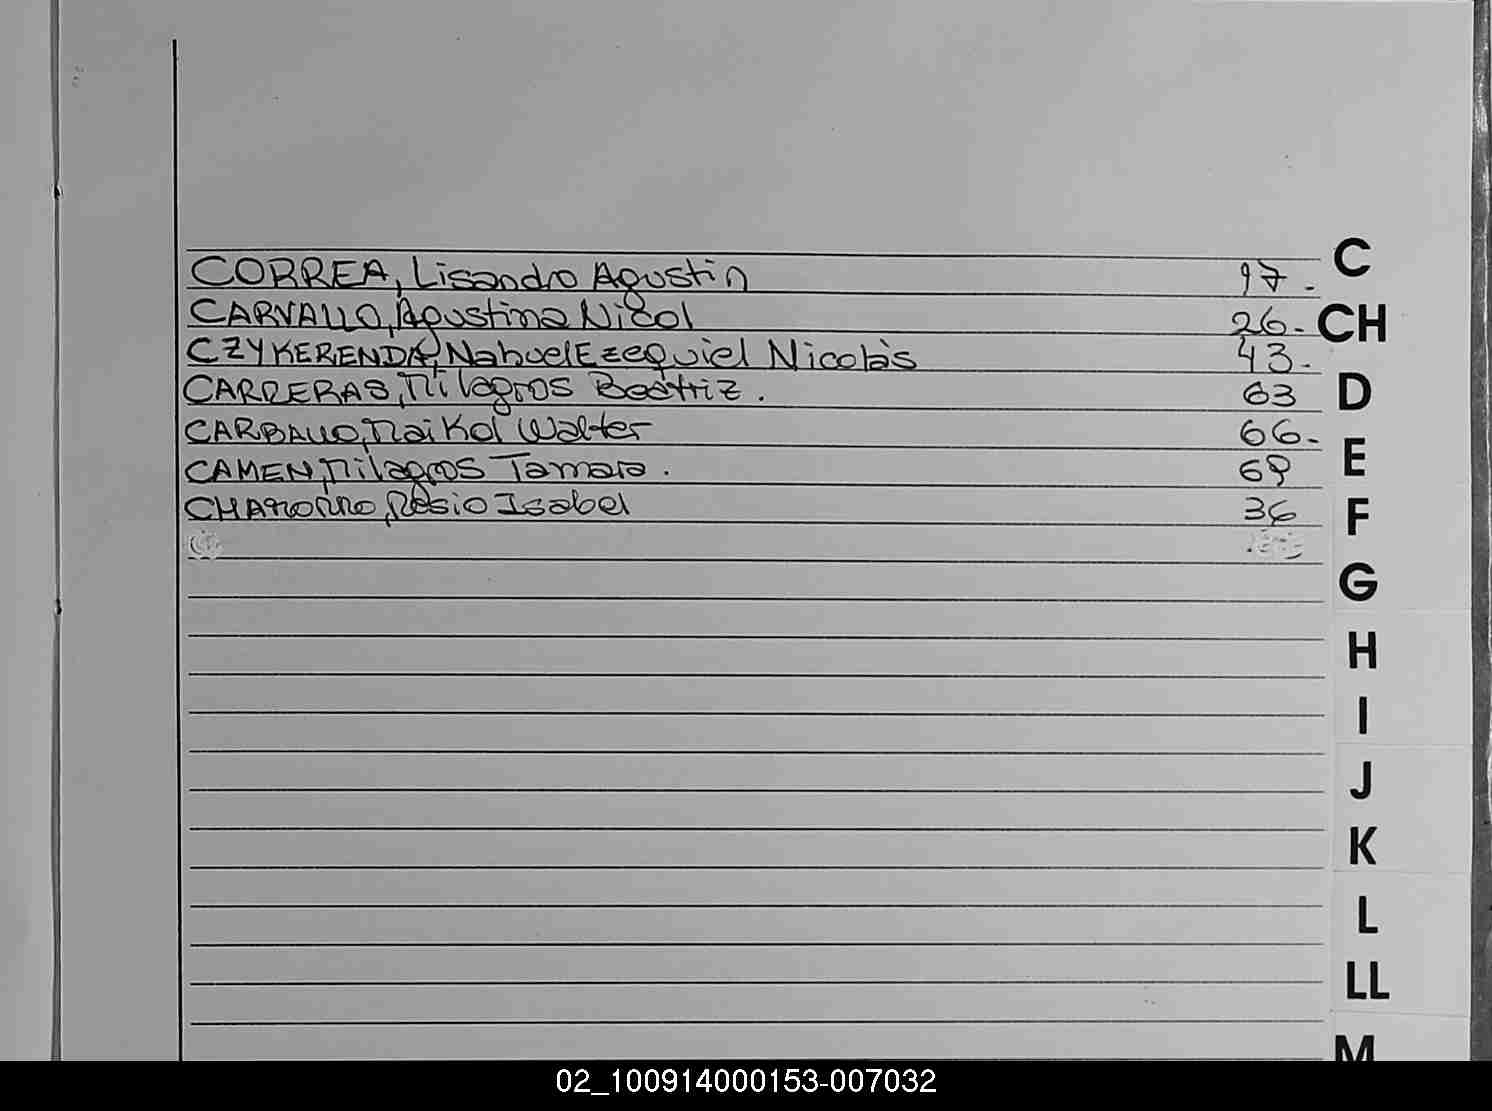 CORREA, Lisandro Agustin 17.-
CARVALLO, Agustina Nicol 26.-
CZYKERENDA, Nahuel Ezequiel Nicolàs 43.-
CARRERAS, Milagros Beatriz. 63
CARBALLO, Maikol Walter 66.-
CAMEN, Milagros Tamara. 69
CHAMORRO, Rosio Isabel 36
C
CH
D
E
F
G
H
I
J
K
L
LL
M
02_100914000153-007032